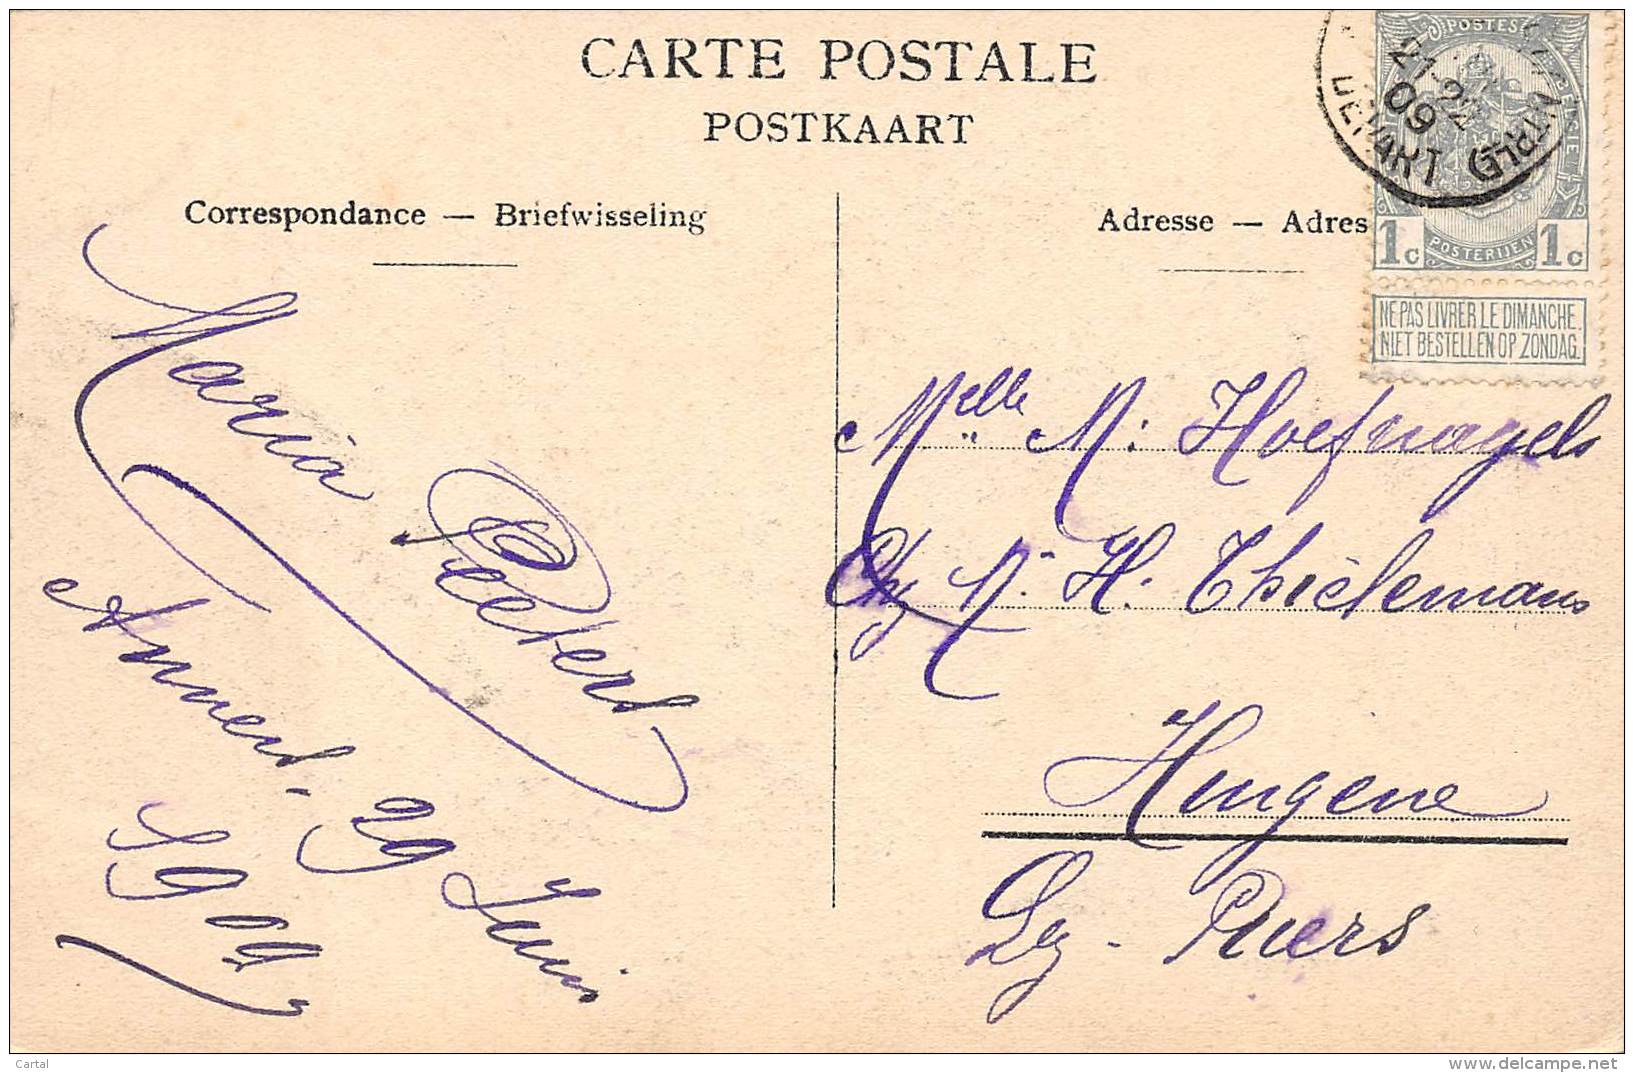 CARTE POSTALE
POSTKAART
Correspondance — Briefwisseling
Maria Peeters
Anvers, 29 Juin
1909
Adresse — Adres
POSTES
21-22
09
DEPART
1c POSTERIJEN 1c
NE PAS LIVRER LE DIMANCHE.
NIET BESTELLEN OP ZONDAG.
Melle M. Hoefnagels
Chez M. H. Thielemans
Hingene
Lez-Puers
Cartal
delcampe.net